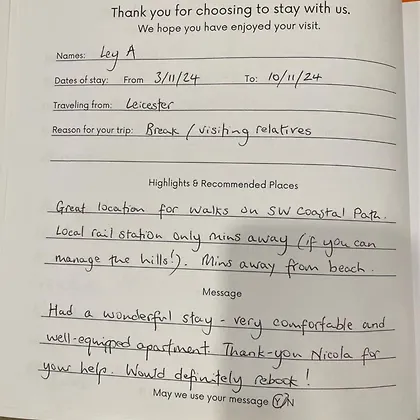 Thank you for choosing to stay with us.
We hope you have enjoyed your visit.
Names: Ley A
Dates of stay: From 3/11/24 To: 10/11/24
Traveling from: Leicester
Reason for your trip: Break / visiting relatives
Highlights & Recommended Places
Great location for walks on SW Coastal Path.
Local rail station only mins away (if you can
manage the hills!). Mins away from beach.
Message
Had a wonderful stay - very comfortable and
well-equipped apartment. Thank-you Nicola for
your help. Would definitely rebook!
May we use your message Y/N